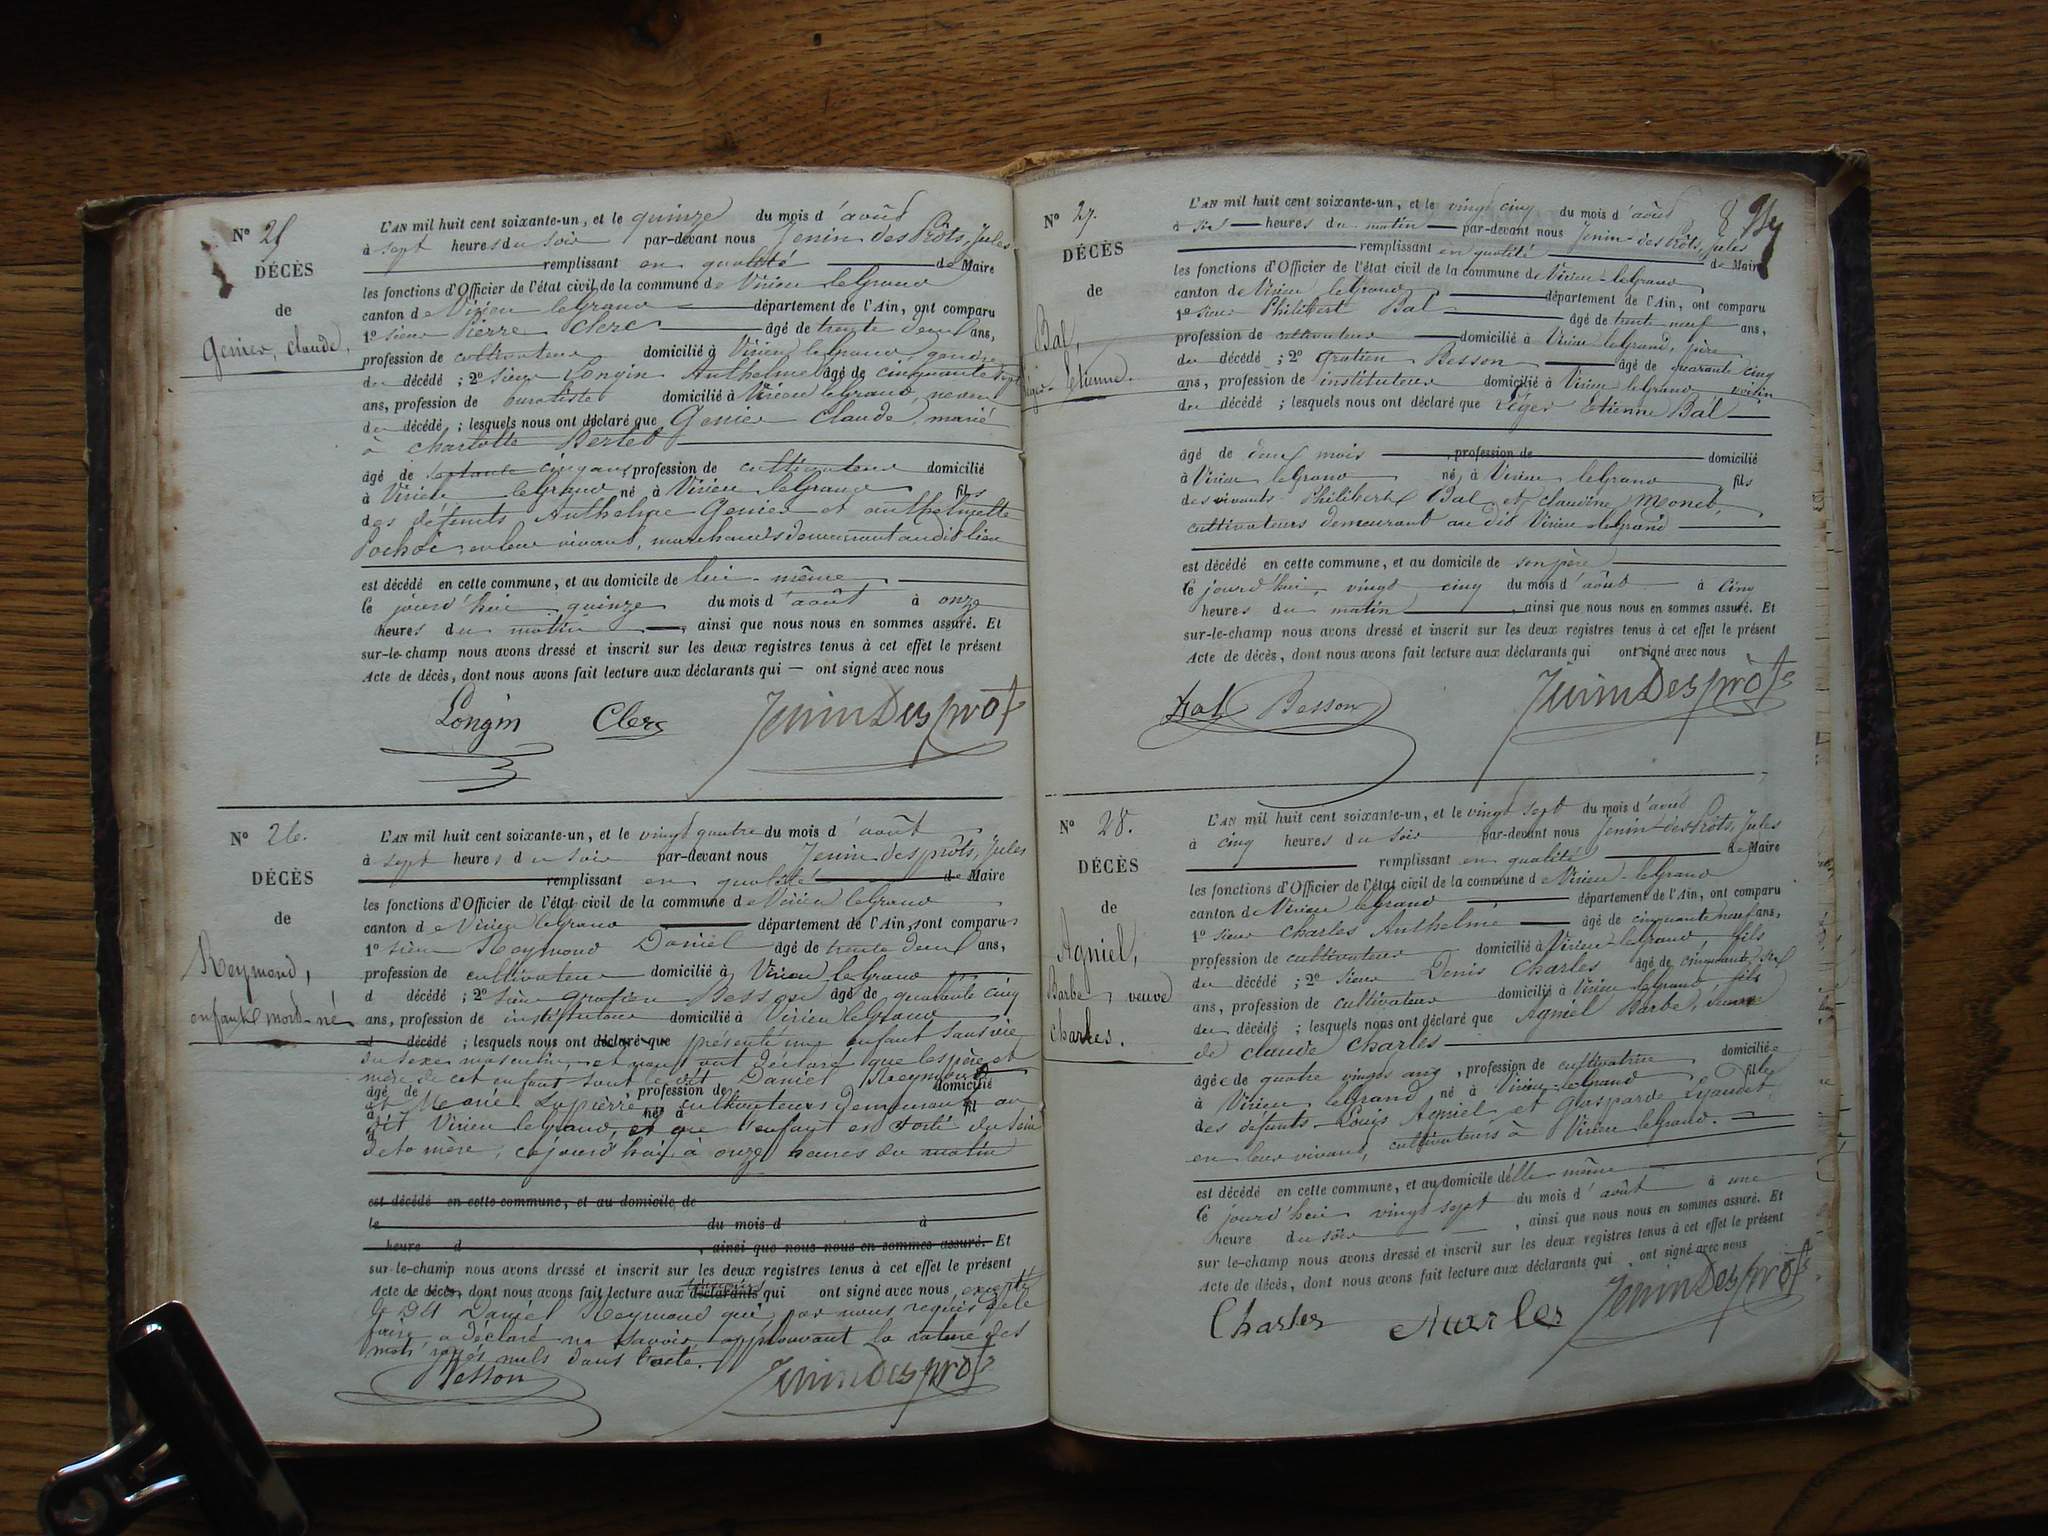 N° 25
DÉCÈS
de
Genier, Claude,
L'AN mil huit cent soixante-un, et le quinze du mois d'août
à sept heures du soir par-devant nous Jenin des Prôts, Jules
remplissant en qualité de Maire
les fonctions d'Officier de l'état civil de la commune de Virieu leGrand
canton de Virieu leGrand département de l'Ain, ont comparu
1° sieur Pierre Clerc âgé de trente deux ans,
profession de cultivateur domicilié à Virieu leGrand, gendre
du décédé ; 2° sieur Longin Anthelme âgé de cinquante sept
ans, profession de domicilié à Virieu leGrand, neveu
du décédé ; lesquels nous ont déclaré que Genier Claude, marié
à Charlotte Bertet
âgé de septante cinq ans, profession de cultivateur domicilié
à Virieu leGrand né à Virieu leGrand fils
des défunts Anthelme Genier et Anthelmette
Pochoi, en leur vivant, marchands demeurant audit lieu
est décédé en cette commune, et au domicile de lui-même
le jourd'hui quinze du mois d'août à onze
heures du matin, ainsi que nous nous en sommes assuré. Et
sur-le-champ nous avons dressé et inscrit sur les deux registres tenus à cet effet le présent
Acte de décès, dont nous avons fait lecture aux déclarants qui — ont signé avec nous
Longin Clerc JeninDesprôts
N° 26.
DÉCÈS
de
Reymond,
enfant mort-né
L'AN mil huit cent soixante-un, et le vingt quatre du mois d'août
à sept heures du soir par-devant nous Jenin desprôts, Jules
remplissant en qualité de Maire
les fonctions d'Officier de l'état civil de la commune de Virieu leGrand
canton de Virieu leGrand département de l'Ain, sont comparus
1° sieur Reymond Daniel âgé de trente deux ans,
profession de cultivateur domicilié à Virieu leGrand
d décédé ; 2° sieur Gratien Besson âgé de quarante cinq
ans, profession de instituteur domicilié à Virieu leGrand
d décédé ; lesquels nous ont déclaré que présenté un enfant sans vie
du sexe masculin, et nous ont déclaré que les père et
mère de cet enfant sont le dit Daniel Reymond
âgé de profession de domicilié
et Marie Lapierre cultivateurs demeurant au
à né à fil
dit Virieu leGrand, et que l'enfant est sorti du sein
d
de sa mère, cejourd'hui à onze heures du matin
est décédé en cette commune, et au domicile de
le du mois d à
heure d , ainsi que nous nous en sommes assuré. Et
sur-le-champ nous avons dressé et inscrit sur les deux registres tenus à cet effet le présent
Acte de décès, dont nous avons fait lecture aux déclarants qui ont signé avec nous, excepté
le dit Daniel Reymond qui, par nous requis de le
faire a déclaré ne savoir, approuvant la rature des
mots rayés nuls dans l'acte.
Besson JeninDesprôts
N° 27.
DÉCÈS
de
Bal,
Léger-Etienne.
L'AN mil huit cent soixante-un, et le vingt cinq du mois d'août
à six heures du matin par-devant nous Jenin-des Prôts, Jules
remplissant en qualité de Maire
les fonctions d'Officier de l'état civil de la commune de Virieu-leGrand
canton de Virieu leGrand département de l'Ain, ont comparu
1° sieur Philibert Bal âgé de trente neuf ans,
profession de cultivateur domicilié à Virieu leGrand, père
du décédé ; 2° Gratien Besson âgé de quarante cinq
ans, profession de instituteur domicilié à Virieu leGrand voisin
du décédé ; lesquels nous ont déclaré que Léger Etienne Bal
âgé de deux mois, profession de domicilié
à Virieu leGrand né à Virieu leGrand fils
des vivants Philibert Bal et Claudine Monet,
cultivateurs demeurant au dit Virieu leGrand
est décédé en cette commune, et au domicile de son père
le jourd'hui vingt cinq du mois d'août à cinq
heures du matin, ainsi que nous nous en sommes assuré. Et
sur-le-champ nous avons dressé et inscrit sur les deux registres tenus à cet effet le présent
Acte de décès, dont nous avons fait lecture aux déclarants qui ont signé avec nous
Bal Besson JeninDesprôts
N° 28.
DÉCÈS
de
Agniel,
Barbe, veuve
Charles.
L'AN mil huit cent soixante-un, et le vingt sept du mois d'août
à cinq heures du soir par-devant nous Jenin-des Prôts, Jules
remplissant en qualité de Maire
les fonctions d'Officier de l'état civil de la commune de Virieu-leGrand
canton de Virieu leGrand département de l'Ain, ont comparu
1° sieur Charles Anthelme âgé de cinquante neuf ans,
profession de cultivateur domicilié à Virieu-leGrand, fils
du décédé ; 2° sieur Denis Charles âgé de cinquante six
ans, profession de cultivateur domicilié à Virieu leGrand, fils
du décédé ; lesquels nous ont déclaré que Agniel Barbe, veuve
de Claude Charles
âgée de quatre vingts ans, profession de cultivatrice domiciliée
à Virieu leGrand né à Virieu-leGrand fille
des défunts Louis Agniel et Gasparde
en leur vivant, cultivateurs à Virieu leGrand.
est décédé en cette commune, et au domicile d'elle-même
le jourd'hui vingt sept du mois d'août à une
heure du soir, ainsi que nous nous en sommes assuré. Et
sur-le-champ nous avons dressé et inscrit sur les deux registres tenus à cet effet le présent
Acte de décès, dont nous avons fait lecture aux déclarants qui, ont signé avec nous
Charles Charles JeninDesprôts